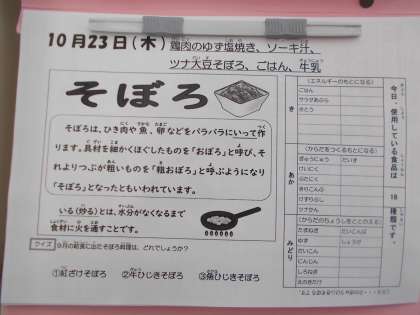 10月23日(木) 鶏肉のゆず塩焼き、ソーキ汁、
ツナ大豆そぼろ、ごはん、牛乳
そぼろ
そぼろは、ひき肉や魚、卵などをパラパラにいって作
ります。具材を細かくほぐしたものを「おぼろ」と呼び、そ
れよりつぶが粗いものを「粗おぼろ」と呼ぶようになり
「そぼろ」となったともいわれています。
いる(炒る)とは、水分がなくなるまで
食材に火を通すことです。
クイズ
9月の給食に出たそぼろ料理は、どれでしょうか?
①紅ざけそぼろ ②牛ひじきそぼろ ③魚ひじきそぼろ
今日、使用している食品は
18
種類です。
き
(エネルギーのもとになる)
ごはん
さとう
あか
(からだをつくるもとになる)
ぎゅうにゅう だいず
けいにく
ぶたにく
ツナかん
みどり
(からだのちょうしをととのえる)
たまねぎ
ゆず しょうが
だいこん
にんじん
しろねぎ
えのきたけ